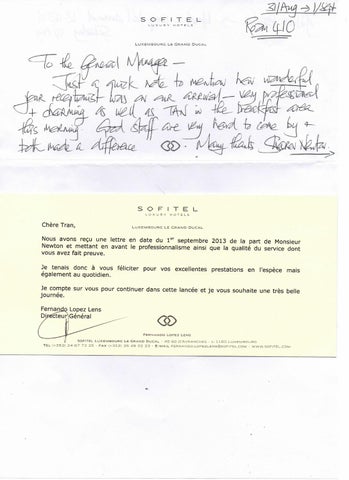 31/Aug → 1/Sept
SOFITEL
LUXURY HOTELS
Room 410
LUXEMBOURG LE GRAND DUCAL
To the General Manager –
Just a quick note to mention how wonderful
your receptionist was on our arrival – very professional
+ charming as well as TAN in the breakfast area
this morning. Good staff are very hard to come by +
both made a difference Many thanks Newton.
SOFITEL
LUXURY HOTELS
LUXEMBOURG LE GRAND DUCAL
Chère Tran,
Nous avons reçu une lettre en date du 1er septembre 2013 de la part de Monsieur
Newton et mettant en avant le professionnalisme ainsi que la qualité du service dont
vous avez fait preuve.
Je tenais donc à vous féliciter pour vos excellentes prestations en l'espèce mais
également au quotidien.
Je compte sur vous pour continuer dans cette lancée et je vous souhaite une très belle
journée.
Fernando Lopez Lens
Directeur Général
FERNANDO LOPEZ LENS
SOFITEL LUXEMBOURG LE GRAND DUCAL - 40 BD D'AVRANCHES - L-1160 LUXEMBOURG